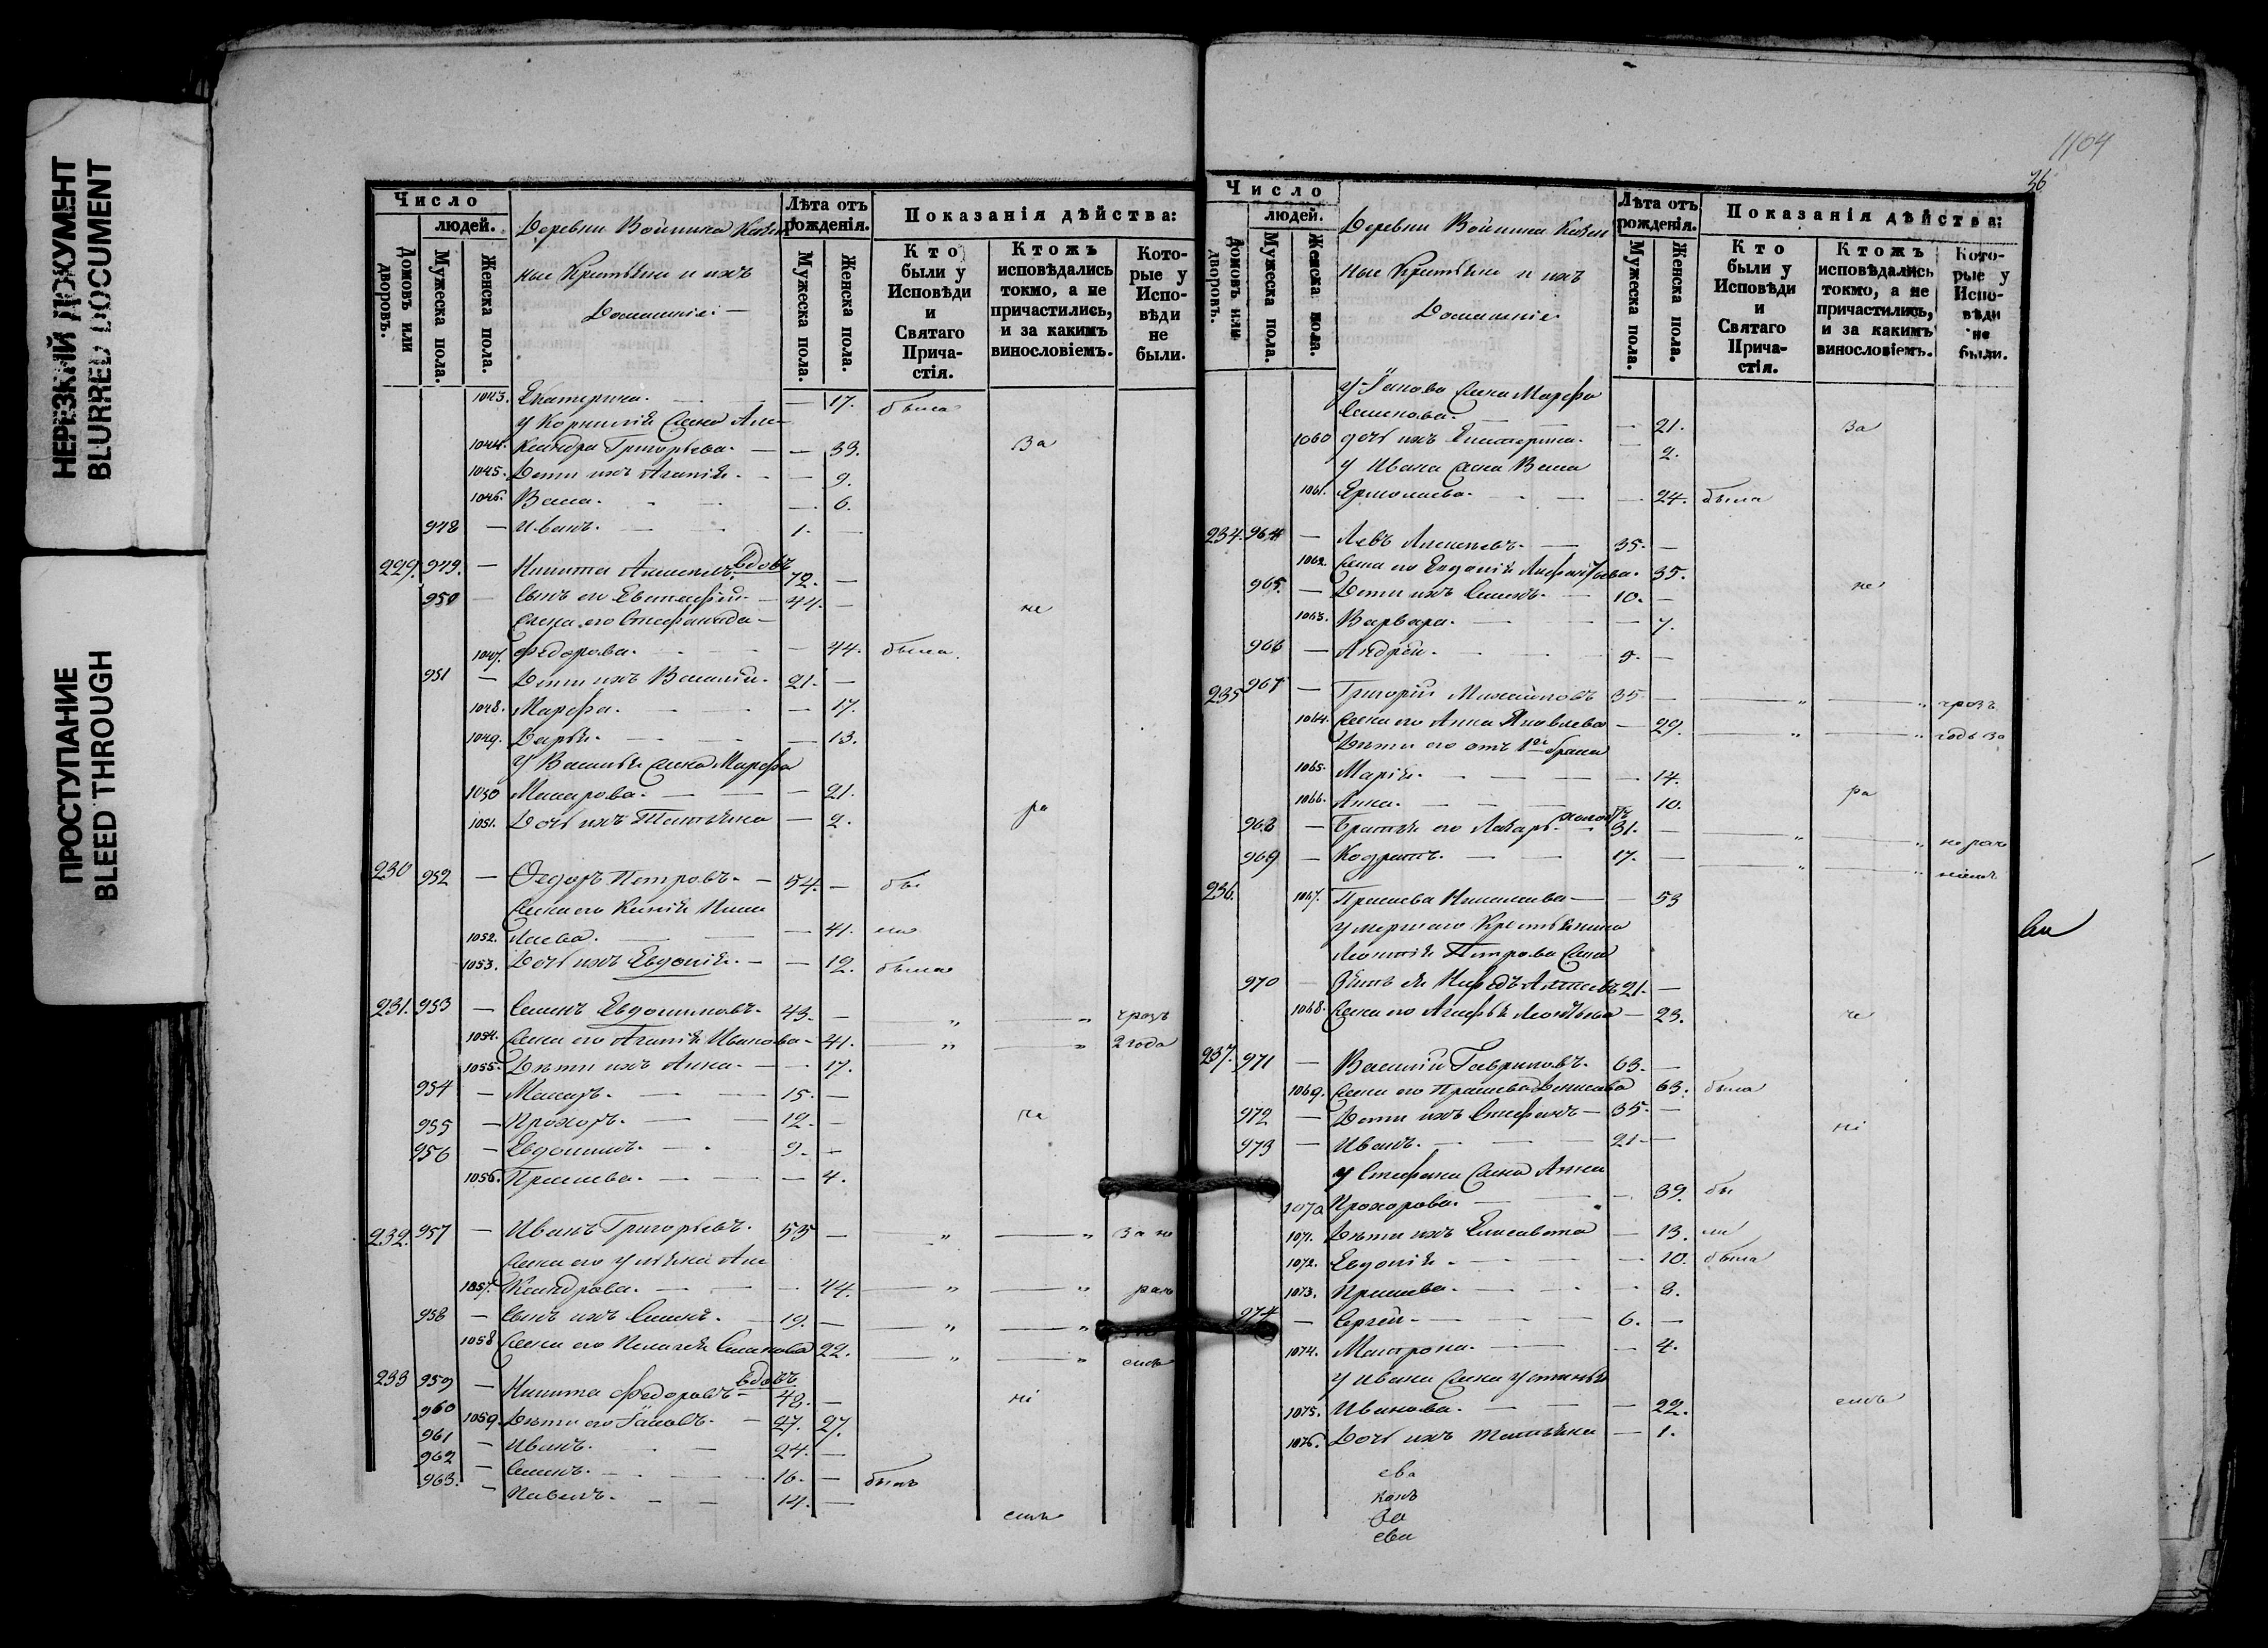 НЕРЕЗКИЙ ДОКУМЕНТ
BLURRED DOCUMENT
ПРОСТУПАНИЕ
BLEED THROUGH
Число
людей.
Домовъ или дворовъ.
Мужеска пола.
Женска пола.
Деревни Войника Казен
ные Крестьяне и ихъ
Домашніе
Лѣта отъ рожденія.
Мужеска пола.
Женска пола.
Показанія дѣйства:
Кто были у Исповѣди и Святаго Прича-стія.
Ктожъ исповѣдались токмо, а не причастились, и за какимъ винословіемъ.
Кото-рые у Испо-вѣди не были.
1043. Екатерина. — 17. была
у Корнилія жена Але
1044. ксандра Григорьева. — 33. За
1045. Дети ихъ Агапія. — 9.
1046. Васса. — 6.
948 — Иванъ. 1. —
229. 949. — Никита Алексеевъ вдовъ 72. —
950 — Сынъ его Евстафей 44. — не
жена его Стефанида
1047. Федорова. — 44. была
951 — Дети ихъ Василий. 21. —
1048. Марфа. — 17.
1049. Дарья. — 13.
У Василья жена Марфа
1050 Макарова. — 21. ра
1051. Дочь ихъ Татьяна — 2.
230 952 — Ѳедоръ Петровъ. 54. — бы
жена его Ксенія Нико
1052. лаева. — 41. ли
1053. Дочь ихъ Евдокія. — 12. была
231. 953 — Семенъ Евдокимовъ. 43. — „ — „ чрезъ
1054. жена его Агапія Иванова — 41. — „ — „ 2 года
1055. Дѣти ихъ Анна. — 17.
954 — Макаръ. 15. —
955 — Прохоръ. 12. — че
956 — Евдокимъ. 9. —
1056. Праскева. — 4.
232. 957 — Иванъ Григорьевъ. 53 — „ — „ За не
жена его Ульяна Але
1057. ксандрова. — 44. — „ — „ раче
958 — Сынъ ихъ Семенъ. 19. — „ — „
1058 жена его Пелагея Семенова 22. — „ — „ емъ
233 959 — Никита Федоровъ вдовъ 48. — ні
960 1059. Дѣти его Іаковъ. 27. 27.
961 — Иванъ. 24. —
962 — Семенъ. 16. — былъ
963. — Павелъ. 14. — емъ
1104
36
Число
людей.
Домовъ или дворовъ.
Мужеска пола.
Женска пола.
Деревни Войника Казен
ные Крестьяне и ихъ
Домашніе
Лѣта отъ рожденія.
Мужеска пола.
Женска пола.
Показанія дѣйства:
Кто были у Исповѣди и Святаго Прича-стія.
Ктожъ исповѣдались токмо, а не причастились, и за какимъ винословіемъ.
Кото-рые у Испо-вѣди не были.
У Іакова жена Марфа
Семенова. — 21. За
1060 дочь ихъ Екатерина. — 2.
У Ивана жена Васса
1061. Ермолаева. — 24. была
234. 964 — Левъ Алексеевъ. 35. —
1062. жена его Евдокія 35. не
965. — Дети ихъ Семенъ. 10. —
1063. Варвара. — 7.
966 — Андрей. 5. —
235 967 — Григорій Михайловъ 35 — „ — „ чрезъ
1064. жена его Анна Яковлева — 29. — „ — „
Дѣти его отъ 1го брака
1065. Марія. — 14.
1066. Анна. — 10. ра
968 — Братья его Лазарь холостъ 31. — „ — „ нерач
969 — Кодратъ. 17. — „ — „ ніемъ
236. 1067. Праскева Николаева — 53
умершаго Крестьянина
Леонтія Петрова жена
970 — Зять ея 21. —
1068. жена его Агафья Леонтьева — 23. че
237. 971 — Василий Гавриловъ. 63. —
1069. жена его Праскева Денисова 63. была
972 — Дети ихъ Стефанъ — 35. — ні
973 — Иванъ. 21 —
у Стефана жена Анна
1070 Прохорова. — 39. бы
1071. Дѣти ихъ Елисавета — 13. ли
1072. Евдокія. — 10. была
1073. Праскева. — 8.
974 — Сергей 6. —
1074. Матрона. — 4.
У Ивана жена Устинья
1075. Иванова. — 22. емъ
1076. Дочь ихъ Татьяна — 1.
ева
конъ
ва
ева